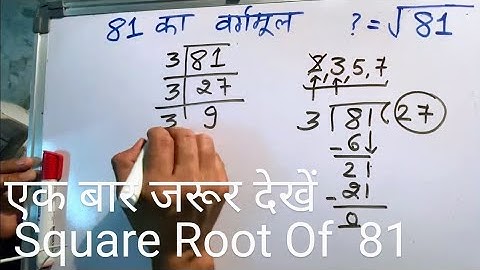 81 का वर्गमूल ? = √81
3 | 81
3 | 27
3 | 9
2, 3, 5, 7
3 ) 81 ( 27
-6↓
21
-21
0
एक बार जरूर देखें
Square Root Of 81